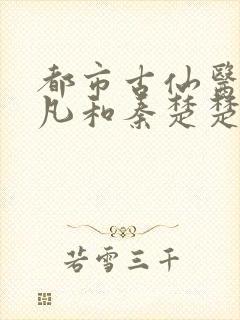 都市古仙醫
凡和秦楚楚
若雪三千